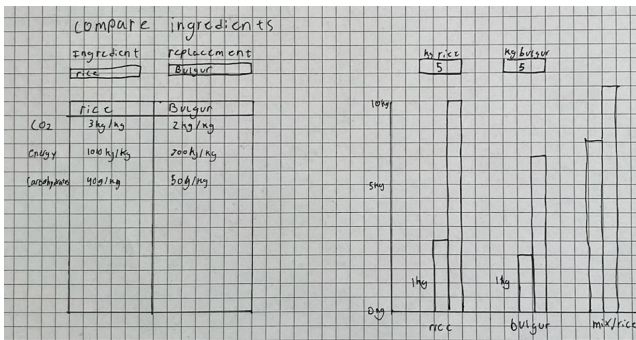 compare ingredients
Ingredient
replacement
rice
Bulgur
rice
Bulgur
CO2
3kg/kg
2kg/kg
Energy
100kj/kg
200kj/kg
Carbohydrates
40g/kg
50g/kg
kg rice
kg bulgur
5
5
10kg
5kg
0kg
1kg
1kg
rice
bulgur
mix/rice